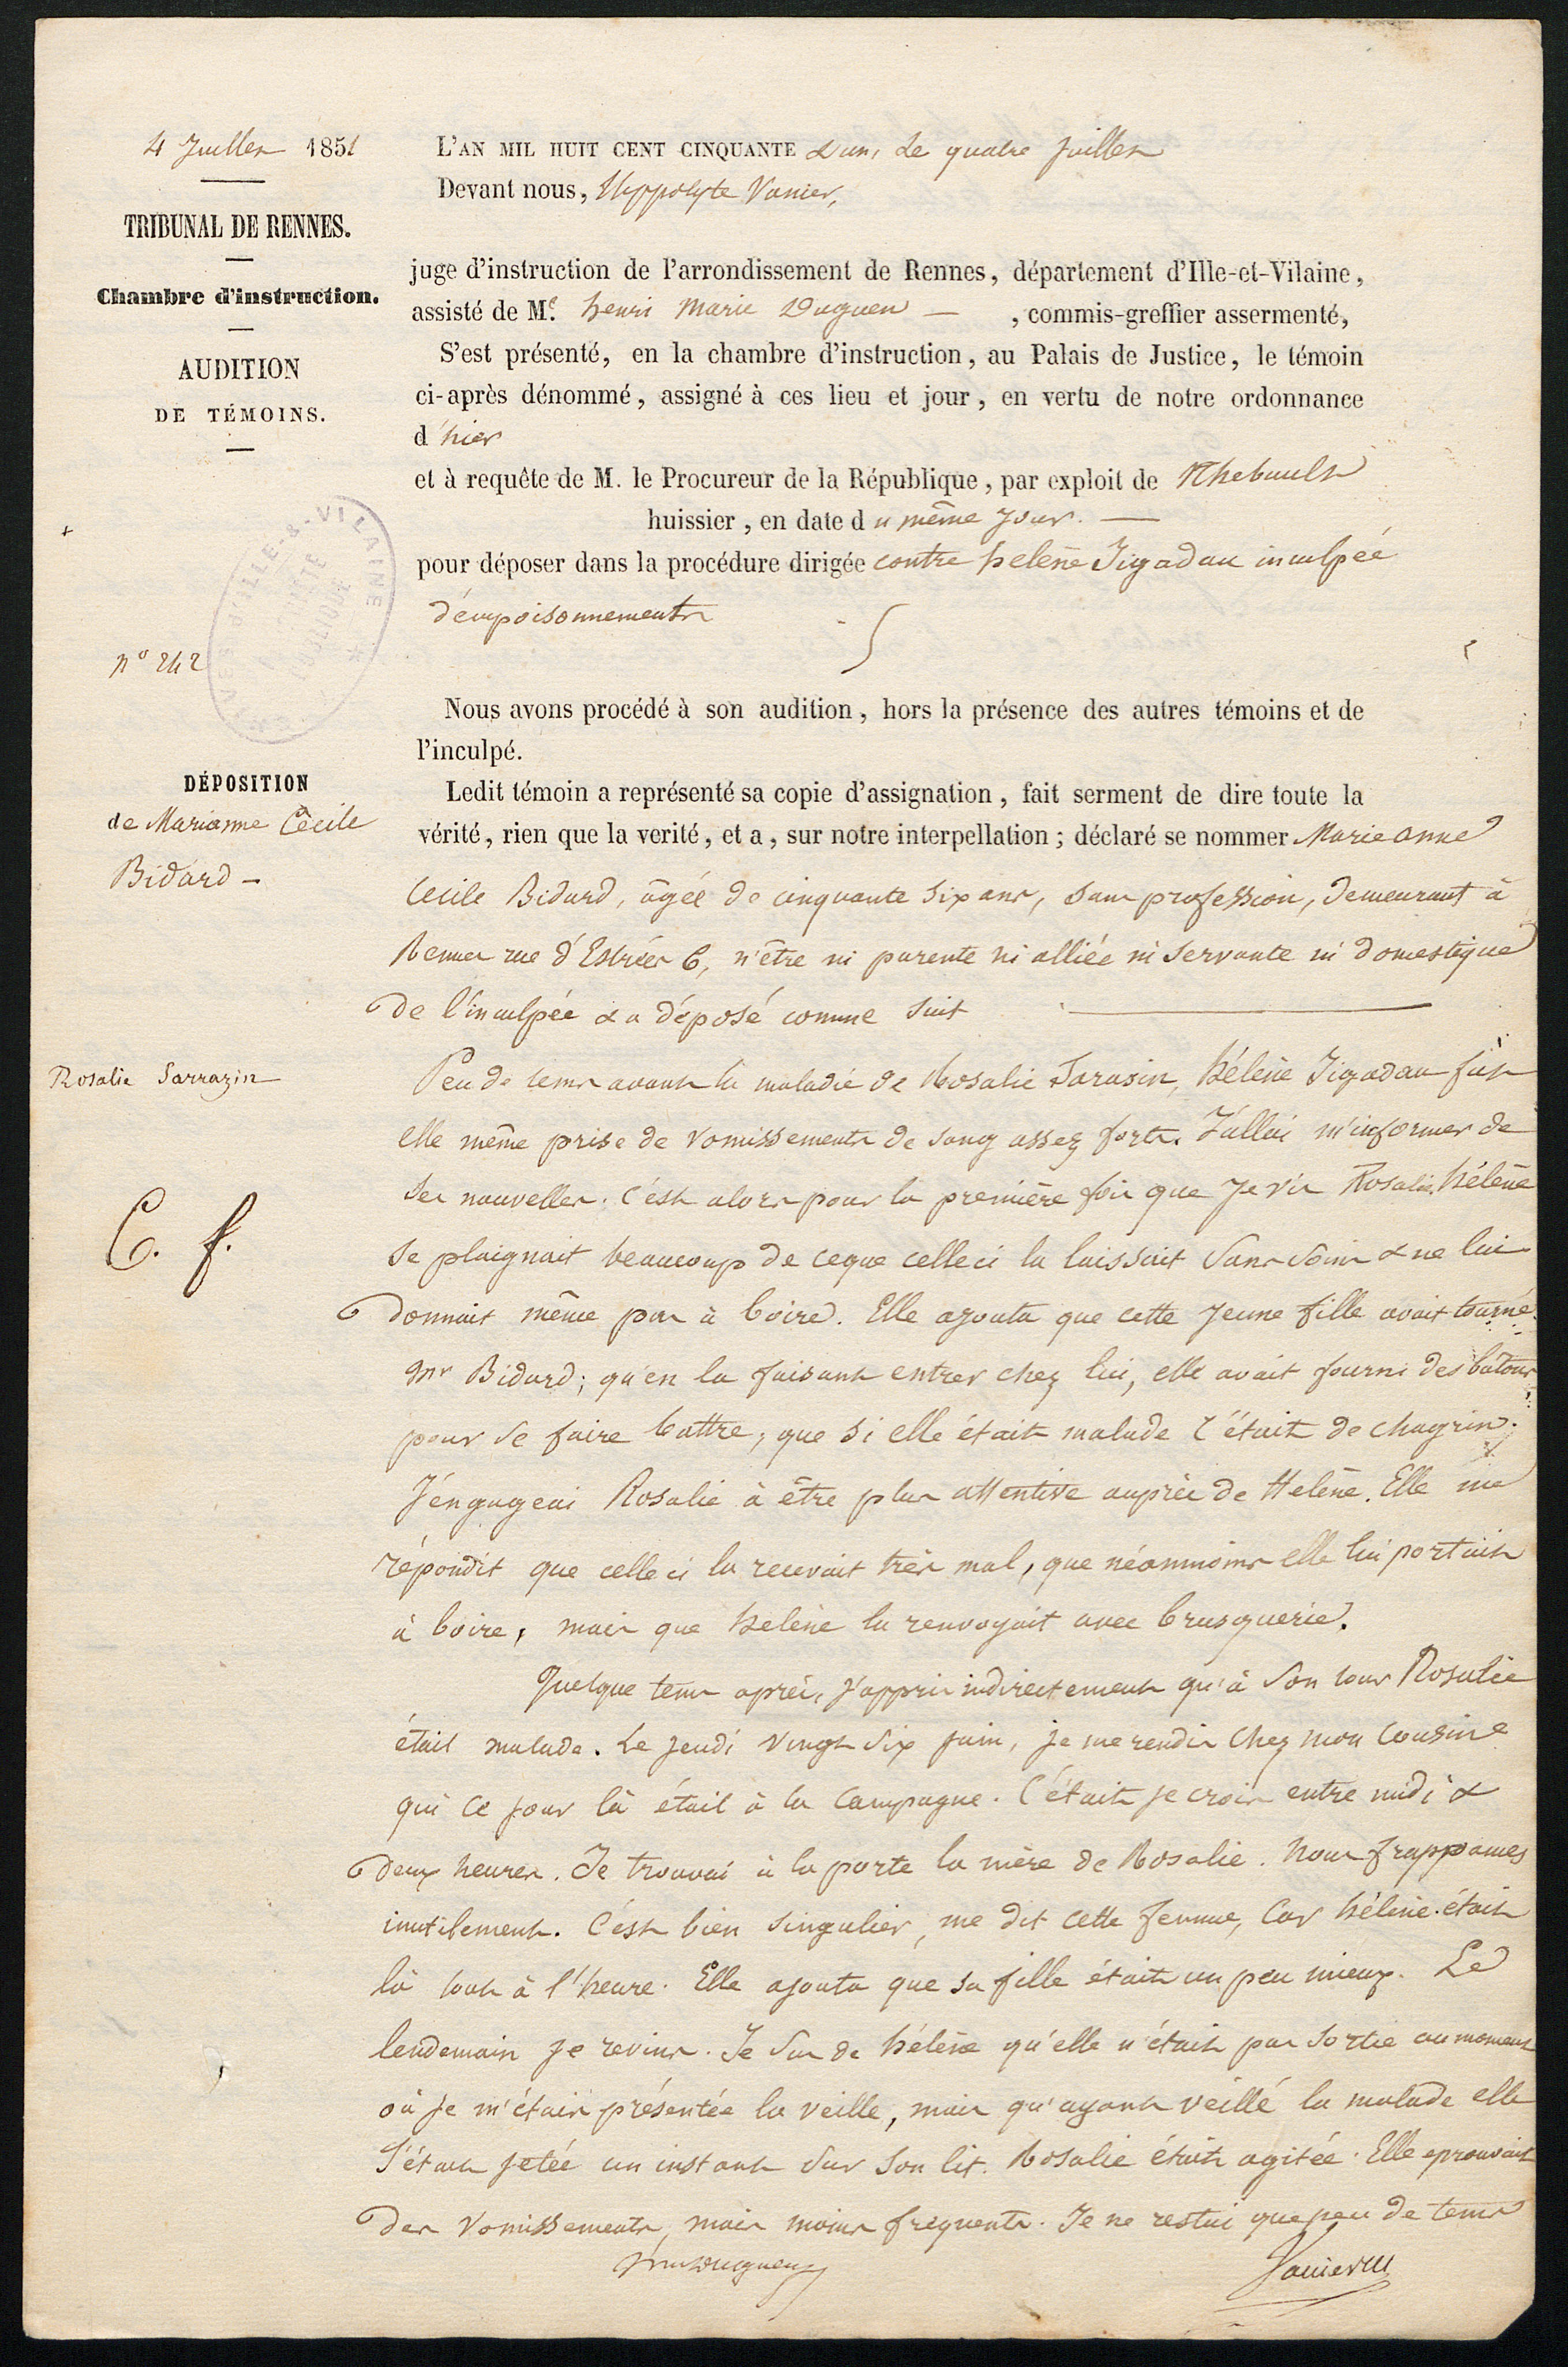 4 Juillet 1851
TRIBUNAL DE RENNES.
Chambre d'instruction.
AUDITION
DE TÉMOINS.
n° 242
DÉPOSITION
de Marianne Cécile
Bidard -
Rosalie Sarrazin
C. f.
L'AN MIL HUIT CENT CINQUANTE & un, le quatre juillet
Devant nous, Hyppolyte Vanier,
juge d'instruction de l'arrondissement de Rennes, département d'Ille-et-Vilaine,
assisté de Me. henri Marie Duguen — , commis-greffier assermenté,
S'est présenté, en la chambre d'instruction, au Palais de Justice, le témoin
ci-après dénommé, assigné à ces lieu et jour, en vertu de notre ordonnance
d'hier
et à requête de M. le Procureur de la République, par exploit de
huissier, en date du même jour. —
pour déposer dans la procédure dirigée contre helène Jigadau inculpée
d'empoisonnements
Nous avons procédé à son audition, hors la présence des autres témoins et de
l'inculpé.
Ledit témoin a représenté sa copie d'assignation, fait serment de dire toute la
vérité, rien que la verité, et a, sur notre interpellation; déclaré se nommer Marie anne
Cecile Bidard, âgée de cinquante six ans, sans profession, demeurant à
Rennes rue d'Estrées 6, n'être ni parente ni alliée ni servante ni domestique
de l'inculpée & a déposé comme suit
Peu de tems avant la maladie de Rosalie Sarasin, hélène Jigadau fut
elle même prise de vomissements de sang assez forts. J'allai m'informer de
ses nouvelles. C'est alors pour la première fois que je vis Rosalie. hélène
se plaignait beaucoup de ceque celleci la laissait sans soins & ne lui
donnait même pas à boire. Elle ajouta que cette jeune fille avait tourné
Mr Bidard; qu'en la faisant entrer chez lui, elle avait fourni des batons
pour se faire battre, que si elle était malade c'était de chagrin.
J'engageai Rosalie à être plus attentive auprès de Helène. Elle me
répondit que celle ci la recevait très mal, que néanmoins elle lui portait
à boire, mais que helène la renvoyait avec brusquerie.
Quelque tems après, j'appris indirectement qu'à son tour Rosalie
était malade. Le jeudi vingt six juin, je me rendis chez mon cousin
qui ce jour là était à la campagne. C'était je crois entre midi &
deux heures. Je trouvai à la porte la mère de Rosalie. Nous frappames
inutilement. C'est bien singulier, me dit cette femme, car hélène était
là tout à l'heure. Elle ajouta que sa fille était un peu mieux. Le
lendemain je revins. Je sus de hélène qu'elle n'était pas sortie au moment
où je m'étais présentée la veille, mais qu'ayant veillé la malade elle
s'était jetée un instant sur son lit. Rosalie était agitée. Elle eprouvait
des vomissements, mais moins frequents. Je ne restai que peu de tems
hm duguen Vanier